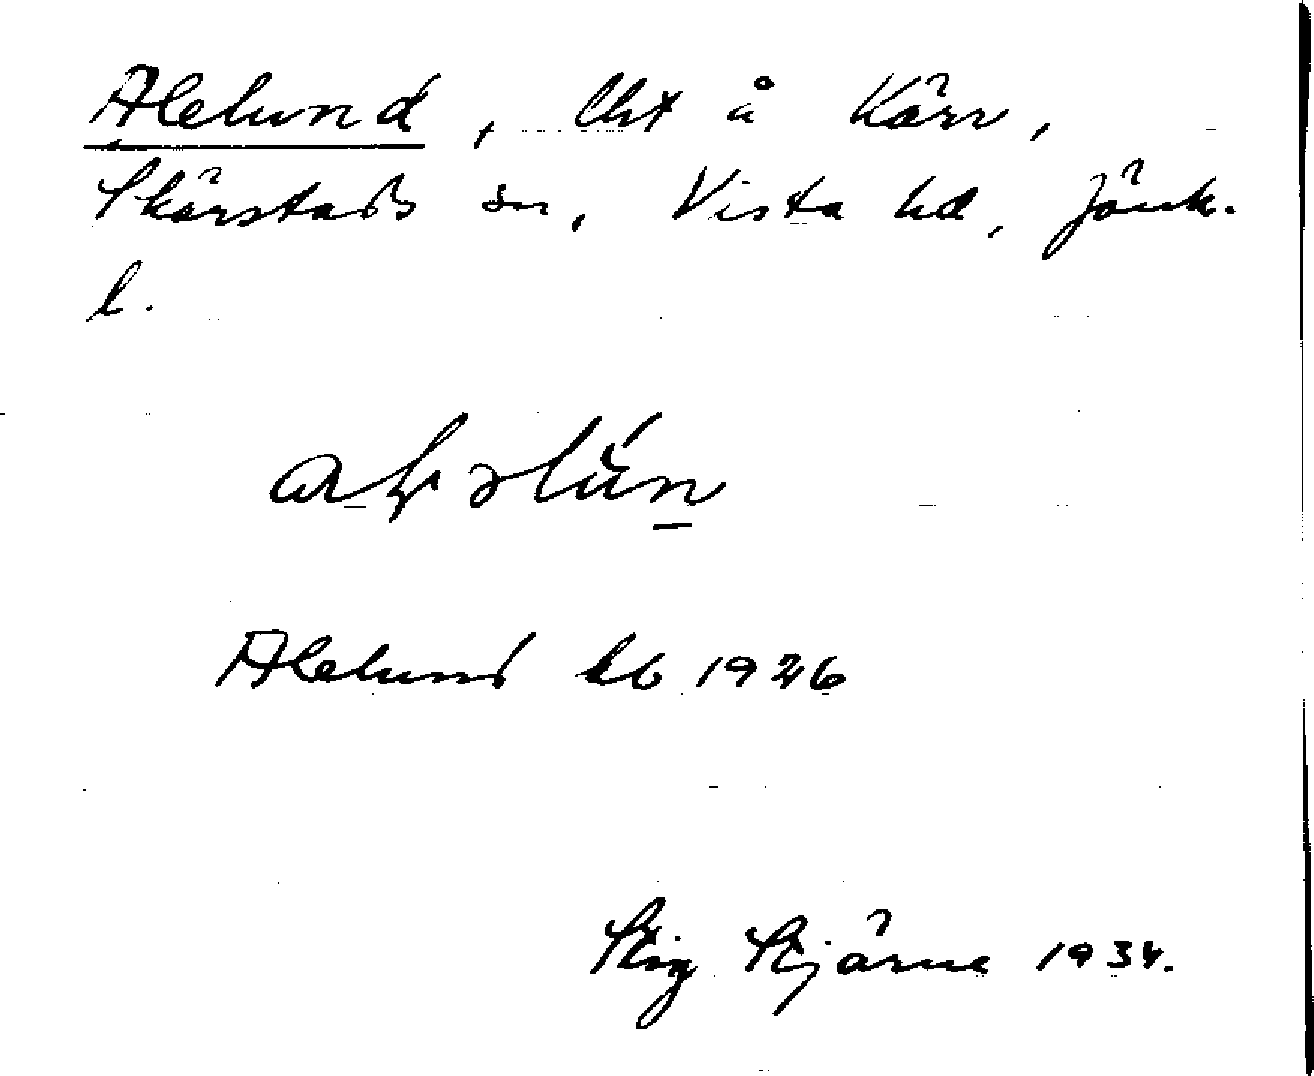 Alelund, lht å Kärr,
Skärstads sn, Vista hd, Jönk.
l.
Alelund kb 1926
Stig Stjärne 1934.